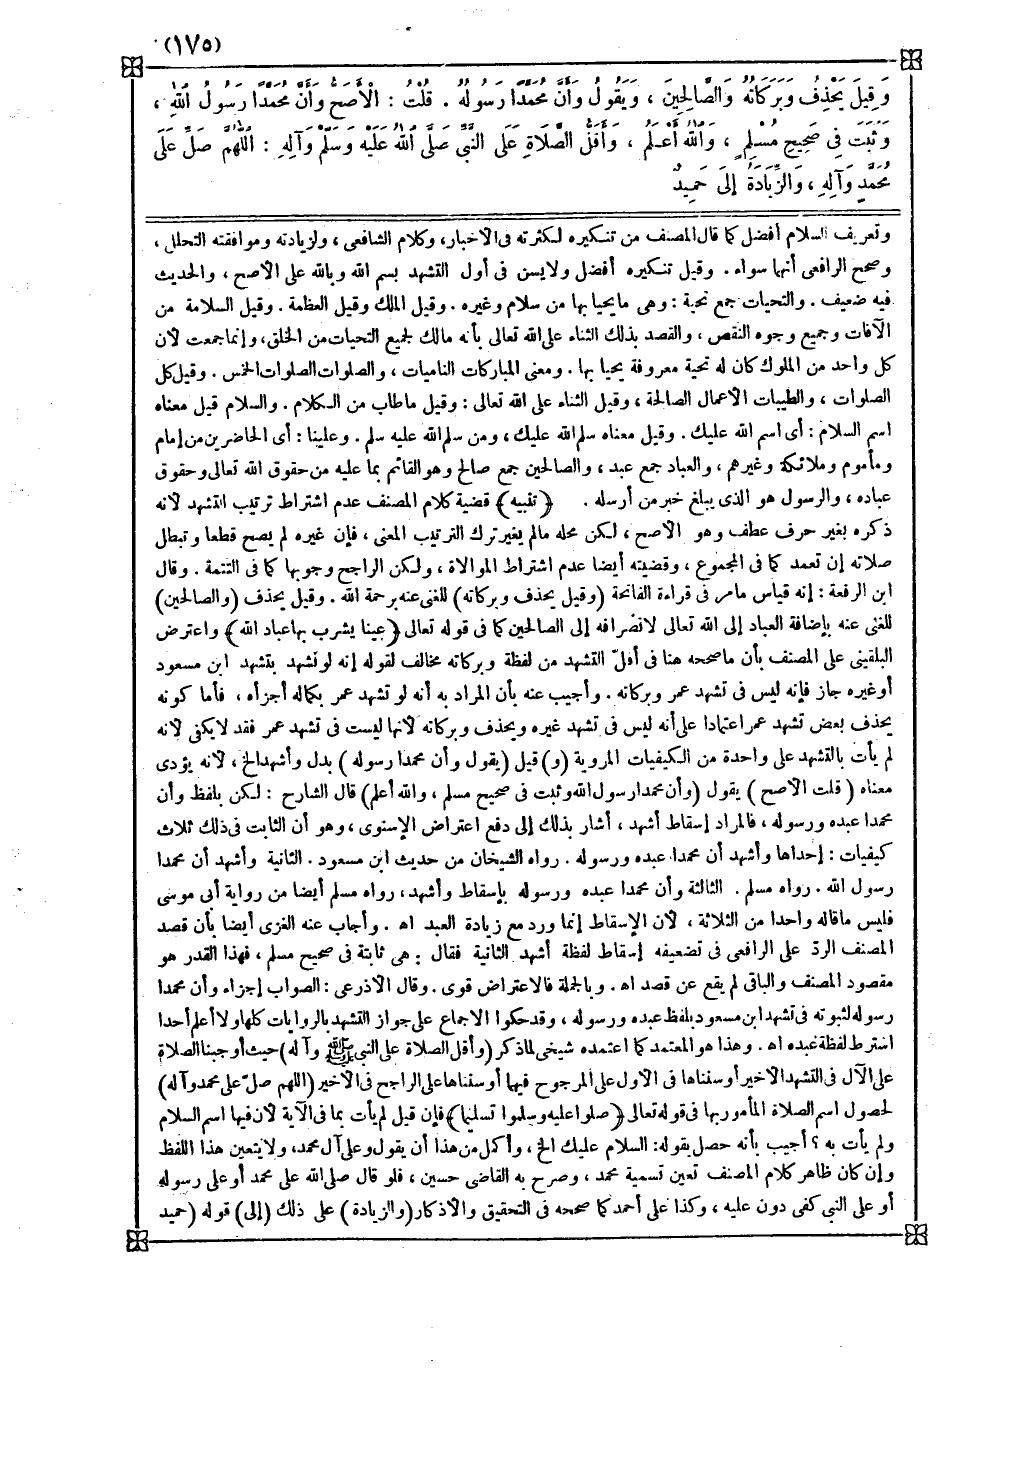 (١٧٥)
وَقِيلَ يَحْذِفُ وَبَرَكَاتُهُ وَالصَّالِحِينَ ، وَيَقُولُ وَأَنَّ مُحَمَّدًا رَسُولُهُ . قُلْتُ : الْأَصَحُّ وَأَنَّ مُحَمَّدًا رَسُولُ اللهِ ،
وَثَبَتَ فِي صَحِيحِ مُسْلِمٍ ، وَاللهُ أَعْلَمُ ، وَأَقَلُّ الصَّلَاةِ عَلَى النَّبِيِّ صَلَّى اللهُ عَلَيْهِ وَسَلَّمَ وَآلِهِ : اللَّهُمَّ صَلِّ عَلَى
مُحَمَّدٍ وَآلِهِ ، وَالزِّيَادَةُ إِلَى حَمِيدٌ
وتعريف السلام أفضل كما قال المصنف من تنكيره لكثرته فى الأخبار، وكلام الشافعى ، ولزيادته وموافقته التحلل ،
وصحح الرافعى أنها سواء . وقيل تنكيره أفضل ولايسن فى أول التشهد بسم الله وبالله على الأصح ، والحديث
فيه ضعيف . والتحيات جمع تحية : وهى مايحيا بها من سلام وغيره . وقيل الملك وقيل العظمة . وقيل السلامة من
الآفات وجميع وجوه النقص ، والقصد بذلك الثناء على الله تعالى بأنه مالك لجميع التحيات من الخلق، وإنما جمعت لأن
كل واحد من الملوك كان له تحية معروفة يحيا بها . ومعنى المباركات الناميات ، والصلوات الصلوات الخمس . وقيل كل
الصلوات ، والطيبات الأعمال الصالحة ، وقيل الثناء على الله تعالى : وقيل ماطاب من الكلام . والسلام قيل معناه
اسم السلام : أى اسم الله عليك . وقيل معناه سلم الله عليك ، ومن سلم الله عليه سلم . وعلينا : أى الحاضرين من إمام
ومأموم وملائكة وغيرهم ، والعباد جمع عبد ، والصالحين جمع صالح وهو القائم بما عليه من حقوق الله تعالى وحقوق
عباده ، والرسول هو الذى يبلغ خبر من أرسله . ﴿تنبيه﴾ قضية كلام المصنف عدم اشتراط ترتيب التشهد لأنه
ذكره بغير حرف عطف وهو الأصح ، لكن محله مالم يغير ترك الترتيب المعنى ، فإن غيره لم يصح قطعا وتبطل
صلاته إن تعمد كما فى المجموع ، وقضيته أيضا عدم اشتراط الموالاة ، ولكن الراجح وجوبها كما فى التتمة . وقال
ابن الرفعة : إنه قياس مامر فى قراءة الفاتحة (وقيل يحذف وبركاته) للغنى عنه برحمة الله . وقيل يحذف (والصالحين)
للغنى عنه بإضافة العباد إلى الله تعالى لانصرافه إلى الصالحين كما فى قوله تعالى ﴿عينا يشرب بها عباد الله﴾ واعترض
البلقينى على المصنف بأن ماصححه هنا فى أقلّ التشهد من لفظة وبركاته مخالف لقوله إنه لو تشهد بتشهد ابن مسعود
أو غيره جاز فإنه ليس فى تشهد عمر وبركاته . وأجيب عنه بأن المراد به أنه لو تشهد عمر بكماله أجزأه ، فأما كونه
يحذف بعض تشهد عمر اعتمادا على أنه ليس فى تشهد غيره ويحذف وبركاته لأنها ليست فى تشهد عمر فقد لايكفى لأنه
لم يأت بالتشهد على واحدة من الكيفيات المروية (و) قيل (يقول وأن محمدا رسوله) بدل وأشهد الخ ، لأنه يؤدى
معناه (قلت الأصح) يقول (وأن محمدا رسول الله وثبت فى صحيح مسلم ، والله أعلم) قال الشارح : لكن بلفظ وأن
محمدا عبده ورسوله ، فالمراد إسقاط أشهد ، أشار بذلك إلى دفع اعتراض الإسنوى ، وهو أن الثابت فى ذلك ثلاث
كيفيات : إحداها وأشهد أن محمدا عبده ورسوله . رواه الشيخان من حديث ابن مسعود . الثانية وأشهد أن محمدا
رسول الله . رواه مسلم . الثالثة وأن محمدا عبده ورسوله بإسقاط وأشهد ، رواه مسلم أيضا من رواية أبى موسى
فليس ماقاله واحدا من الثلاثة ، لأن الإسقاط إنما ورد مع زيادة العبد اه . وأجاب عنه الغزى أيضا بأن قصد
المصنف الردّ على الرافعى فى تضعيفه إسقاط لفظة أشهد الثانية فقال : هى ثابتة فى صحيح مسلم ، فهذا القدر هو
مقصود المصنف والباقى لم يقع عن قصد اه . وبالجملة فالاعتراض قوى . وقال الأذرعى : الصواب إجزاء وأن محمدا
رسوله لثبوته فى تشهد ابن مسعود بلفظ عبده ورسوله ، وقد حكوا الإجماع على جواز التشهد بالروايات كلها ولا أعلم أحدا
اشترط لفظة عبده اه . وهذا هو المعتمد كما اعتمده شيخى لما ذكر (وأقل الصلاة على النبى ﷺ وآله) حيث أوجبنا الصلاة
على الآل فى التشهد الأخير أو سنناها فى الأول على المرجوح فيها أو سنناها على الراجح فى الأخير (اللهم صلّ على محمد وآله)
لحصول اسم الصلاة المأمور بها فى قوله تعالى ﴿صلوا عليه وسلموا تسليما﴾ فإن قيل لم يأت بما فى الآية لأن فيها اسم السلام
ولم يأت به ؟ أجيب بأنه حصل بقوله : السلام عليك الخ ، وأكمل من هذا أن يقول وعلى آل محمد، ولايتعين هذا اللفظ
وإن كان ظاهر كلام المصنف تعين تسمية محمد ، وصرح به القاضى حسين ، فلو قال صلى الله على محمد أو على رسوله
أو على النبى كفى دون عليه ، وكذا على أحمد كما صححه فى التحقيق والأذكار (والزيادة) على ذلك (إلى) قوله (حميد